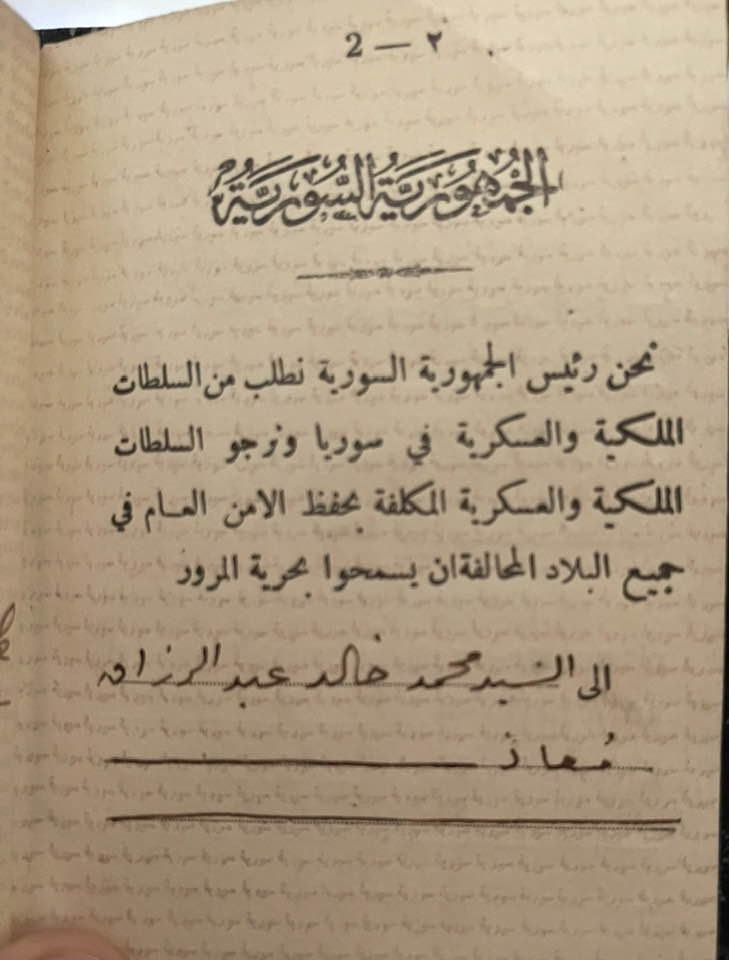 2 — ٢
الجُمْهُورِيَّةُ السُّورِيَّةُ
نحن رئيس الجمهورية السورية نطلب من السلطات
الملكية والعسكرية في سوريا ونرجو السلطات
الملكية والعسكرية المكلفة بحفظ الامن العام في
جميع البلاد المحالفة ان يسمحوا بحرية المرور
الى السيد محمد خالد عبد الرزاق
مُعاذ